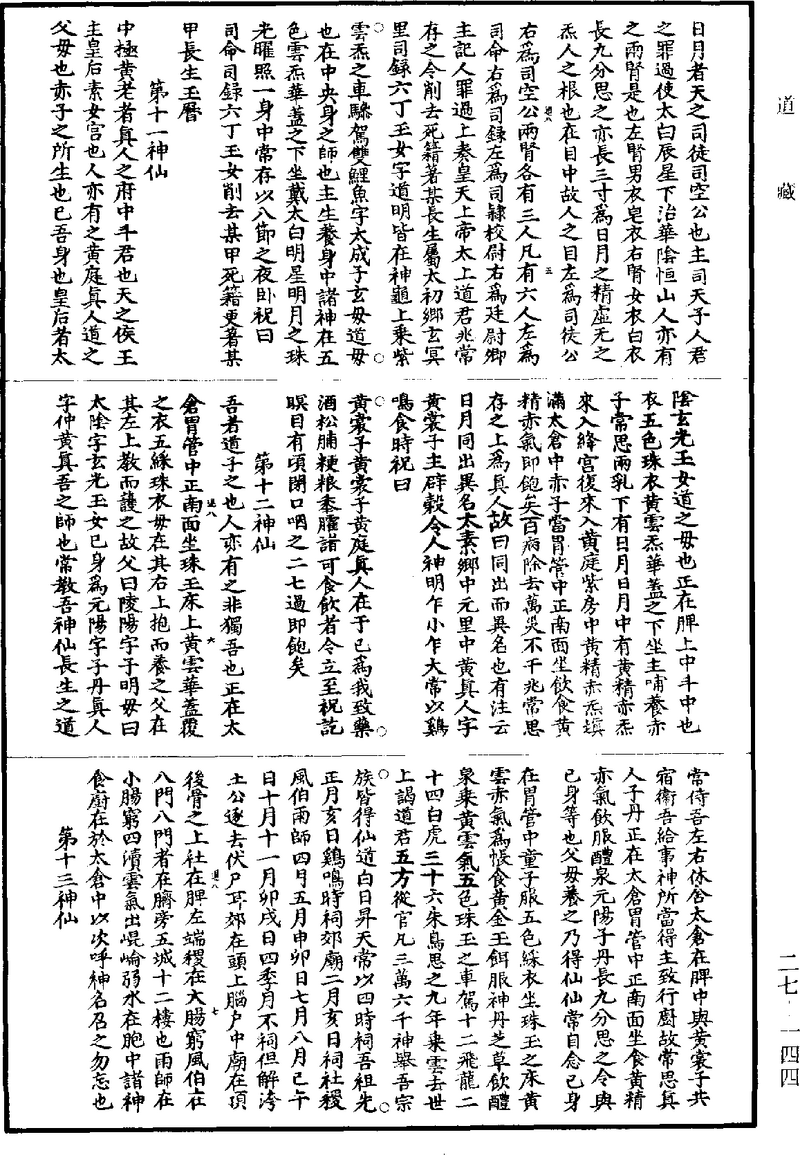 道藏
日月者天之司徒司空公也主司天子人君
之罪過使太白辰星下治華陰恒山人亦有
之兩腎是也左腎男衣皂衣右腎女衣白衣
長九分思之亦長三寸為日月之精虛无之
炁人之根也在目中故人之目左為司徒公
右為司空公兩腎各有三人凡有六人左為
司命右為司錄左為司隸校尉右為廷尉卿
主記人罪過上奏皇天上帝太上道君兆常
存之令削去死籍著某長生屬太初鄉玄冥
里司錄六丁玉女字道明皆在神龜上乘紫
雲炁之車驂駕雙鯉魚字太成子玄母道母
也在中央身之師也主生養身中諸神在五
色雲炁華蓋之下坐戴太白明星明月之珠
光曜照一身中常存以八節之夜卧祝曰
司命司錄六丁玉女削去某甲死籍更著某
甲長生玉曆
第十一神仙
中極黃老者真人之府中斗君也天之侯王
主皇后素女宮也人亦有之黃庭真人道之
父母也赤子之所生也已吾身也皇后者太
陰玄光玉女道之母也正在脾上中斗中也
衣五色珠衣黃雲炁華蓋之下坐主哺養赤
子常思兩乳下有日月日月中有黃精赤炁
來入絳宮復來入黃庭紫房中黃精赤炁填
滿太倉中赤子當胃管中正南面坐飲食黃
精赤氣即飽矣百病除去萬災不干兆常思
存之上為真人故曰同出而異名也有注云
日月同出異名太素鄉中元里中黃真人字
黃裳子主辟穀令人神明乍小乍大常以雞
鳴食時祝曰
黃裳子黃裳子黃庭真人在于己為我致藥
酒松脯粳粮黍臛諸可食飲者令立至祝訖
瞑目有頃閉口咽之二七過即飽矣
第十二神仙
吾者道子之也人亦有之非獨吾也正在太
倉胃管中正南面坐珠玉床上黃雲華蓋覆
之衣五綵珠衣母在其右上抱而養之父在
其左上教而護之故父曰陵陽字子明母曰
太陰字玄光玉女己身為元陽字子丹真人
字仲黃真吾之師也常教吾神仙長生之道
常侍吾左右休舍太倉在脾中與黃裳子共
宿衛吾給事神所當得主致行廚故常思真
人子丹正在太倉胃管中正南面坐食黃精
赤氣飲服醴泉元陽子丹長九分思之令與
己身等也父母養之乃得仙仙常自念己身
在胃管中童子服五色綵衣坐珠玉之床黃
雲赤氣為帳食黃金玉餌服神丹芝草飲醴
泉乘黃雲氣五色珠玉之車駕十二飛龍二
十四白虎三十六朱鳥思之九年乘雲去世
上謁道君五方從官凡三萬六千神舉吾宗
族皆得仙道白日昇天常以四時祠吾祖先
正月亥日雞鳴時祠郊廟二月亥日祠社稷
風伯雨師四月五月申卯日七月八月己午
日十月十一月卯戌日四季月不祠但解洿
土公逐去伏尸耳郊在頭上腦戶中廟在項
後骨之上社在脾左端稷在大腸窮風伯在
八門八門者在臍旁五城十二樓也雨師在
小腸窮四瀆雲氣出崐崘弱水在胞中諸神
食廚在於太倉中以次呼神名召之勿忘也
第十三神仙
二七·一四四